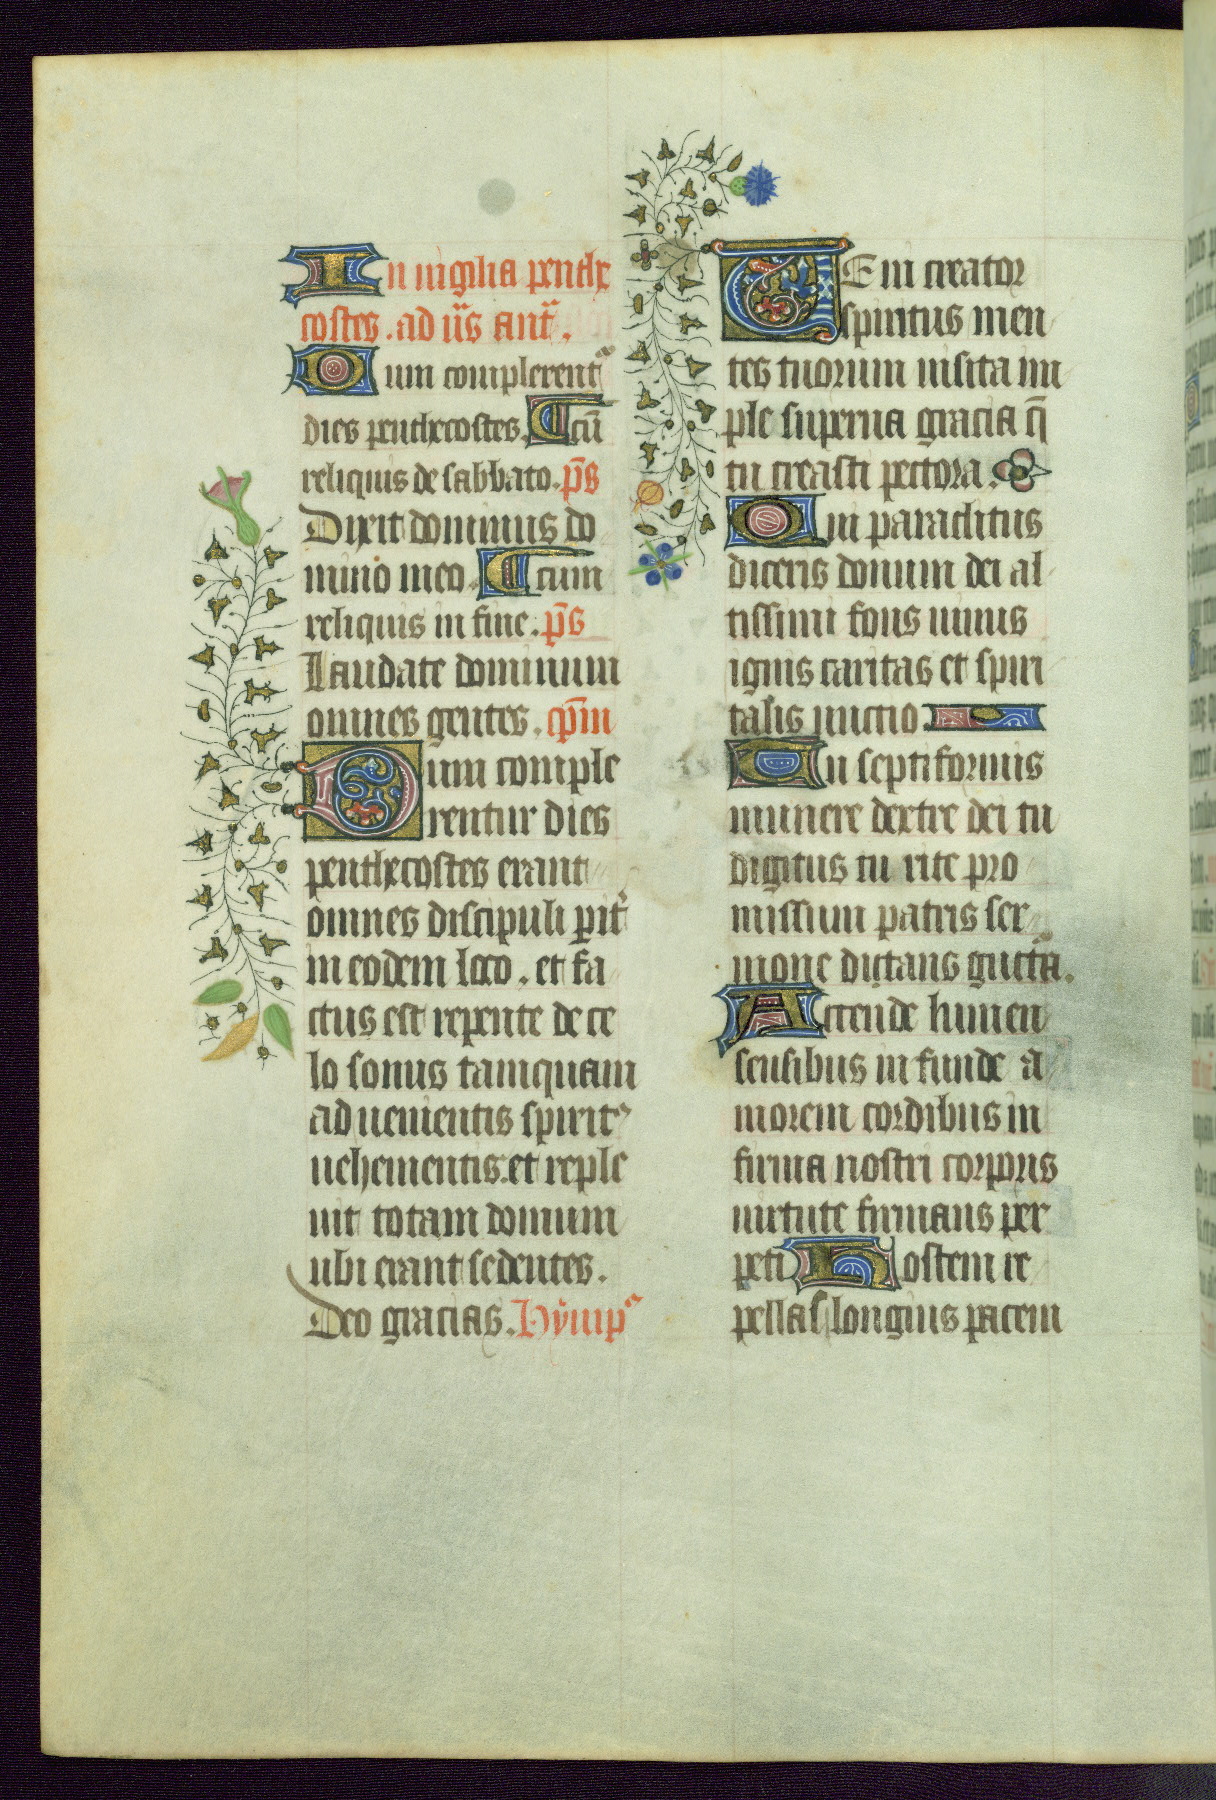 In uigilia penthe
costes. ad ũs ant̃.
Dum complerentᷣ
dies penthecostes. Et cũ
reliquis de sabbato. p̄s
Dixit dominus do
mino meo. Et cum
reliquis in fine. p̄s
Laudate dominum
omnes gentes. cp̄m
Dum comple
rentur dies
penthecostes erant
omnes discipuli pit᷑
in eodem loco. et fa
ctus est repente de ce
lo sonus tamquam
aduenientis spirit᷒
uehementis. et reple
uit totam domum
ubi erant sedentes.
Deo gracias. Hymp᷒
VEni creator
spiritus men
tes tuorum uisita im
ple superna gracia q̄
tu creasti pectora.
Qui paraclitus
diceris donum dei al
tissimi fons uiuus
ignis caritas et spiri
talis unctio
Tu septiformis
munere dextre dei tu
digitus tu rite pro
missum patris ser
mone dictans guctᷓa.
Accende lumen
sensibus in funde a
morem cordibus in
firma nostri corporis
uirtute firmans per
peti Hostem re
pellas longius pacem